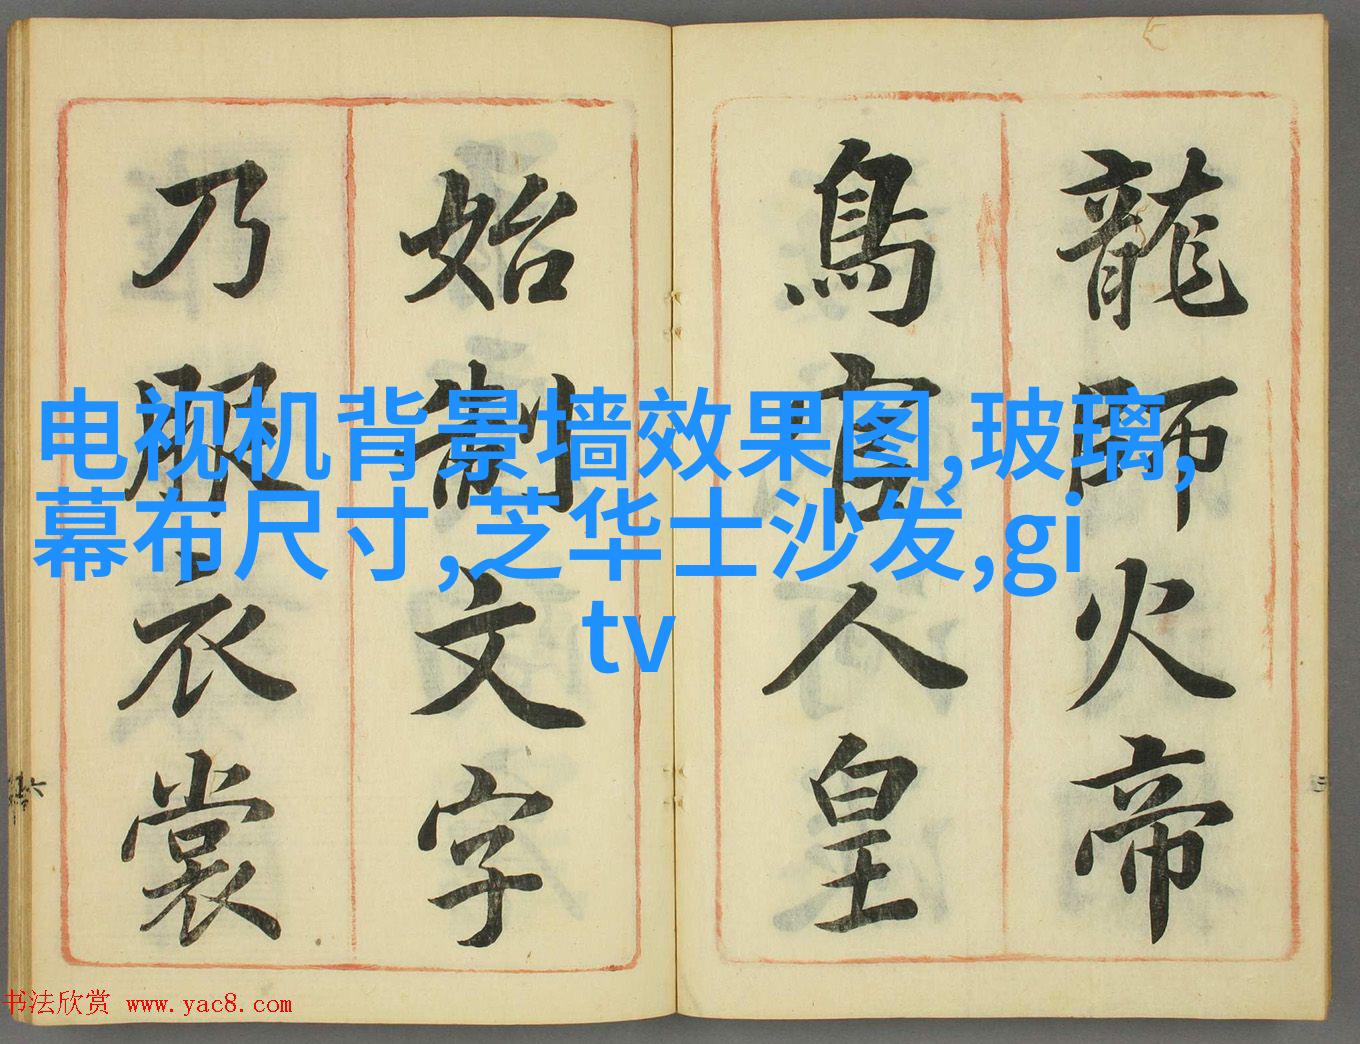 龍師火帝
鳥官人皇
始制文字
乃服衣裳
电视机背景墙效果图,玻璃,
幕布尺寸,芝华士沙发,gi
tv
书法欣赏 www.yac8.com